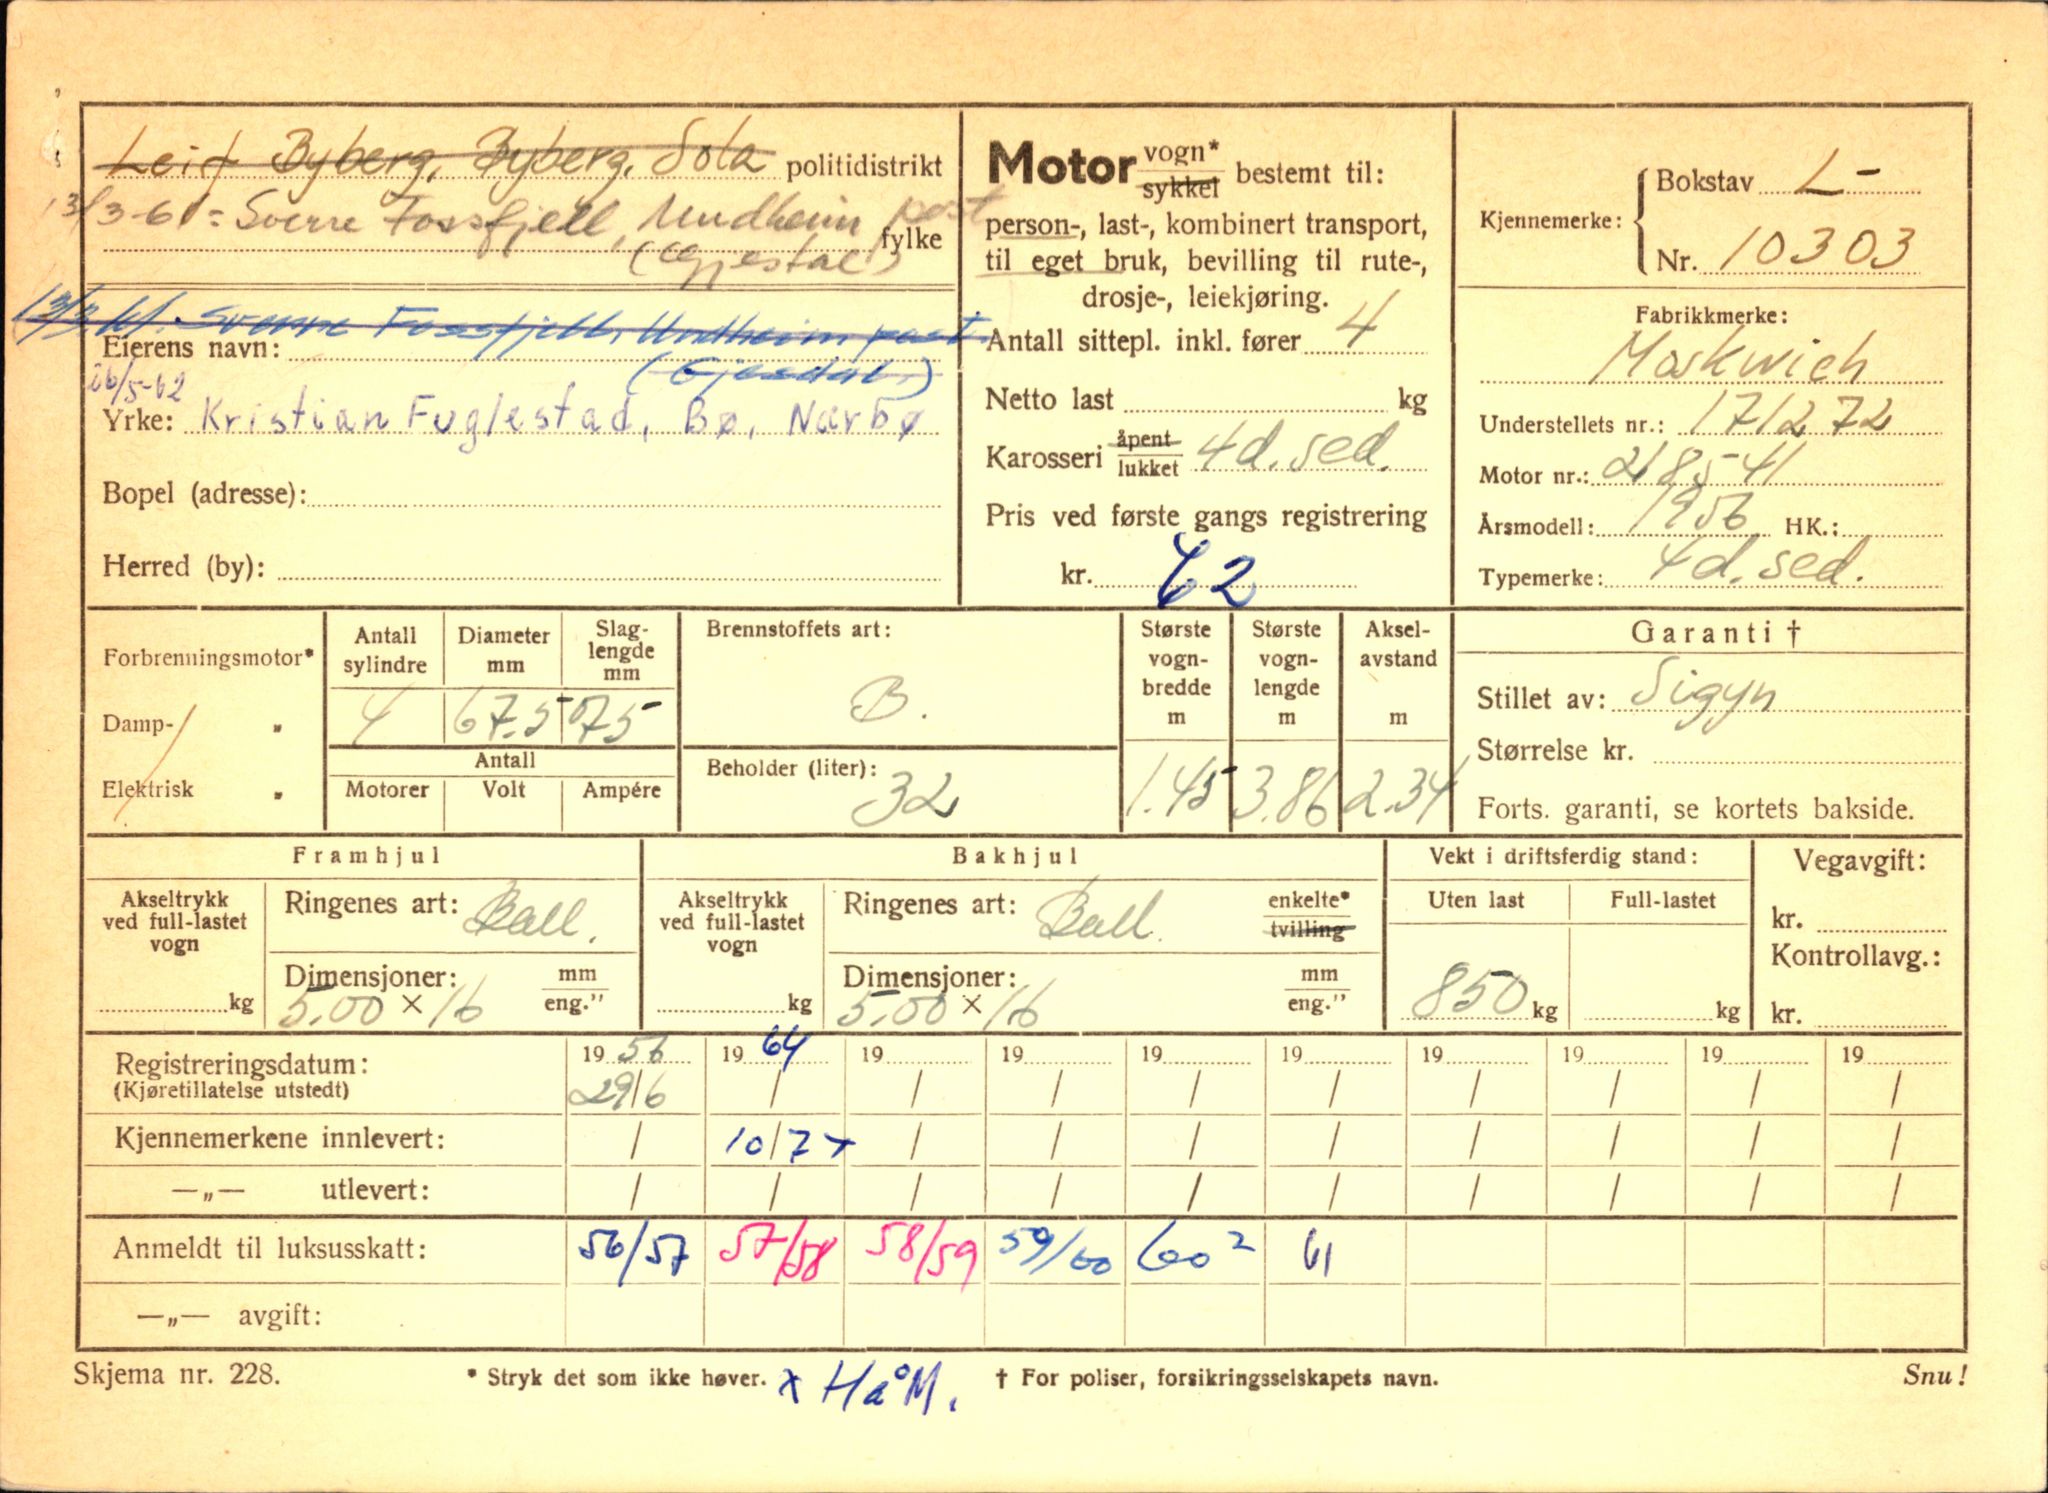 Leif Byberg, Byberg, Sola politidistrikt
13/3-61 = Sverre Fossfjell, Undheim post
(Gjestal) fylke
13/3-61. Sverre Fossfjell, Undheim post
Eierens navn:
(Gjesdal.)
26/5-62
Yrke: Kristian Fuglestad, Bø, Nærbø
Bopel (adresse):
Herred (by):
Motor vogn* sykkel bestemt til:
person-, last-, kombinert transport,
til eget bruk, bevilling til rute-,
drosje-, leiekjøring.
Antall sittepl. inkl. fører 4
Netto last kg
Karosseri åpent lukket 4d. sed.
Pris ved første gangs registrering
kr. 62
Kjennemerke: Bokstav L-
Nr. 10303
Fabrikkmerke:
Moskwich
Understellets nr.: 171272
Motor nr.: 218541
Årsmodell: 1956 HK.:
Typemerke: 4d. sed.
Forbrenningsmotor*
Damp- "
Elektrisk "
Antall sylindre Diameter mm Slag-lengde mm
4 67.5 75
Antall
Motorer Volt Ampére
Brennstoffets art:
B.
Beholder (liter):
32
Største vogn-bredde m Største vogn-lengde m Aksel-avstand m
1.45 3.86 2.34
Garanti †
Stillet av: Sigyn
Størrelse kr.
Forts. garanti, se kortets bakside.
Framhjul
Akseltrykk ved full-lastet vogn
kg
Ringenes art: Ball.
Dimensjoner: mm eng."
5.00 × 16
Bakhjul
Akseltrykk ved full-lastet vogn
kg
Ringenes art: Ball. enkelte* tvilling
Dimensjoner: mm eng."
5.00 × 16
Vekt i driftsferdig stand:
Uten last Full-lastet
850 kg kg
Vegavgift:
kr.
Kontrollavg.:
kr.
Registreringsdatum: 19 56 19 64 19 19 19 19 19 19 19 19
(Kjøretillatelse utstedt) 29/6 / / / / / / / / /
Kjennemerkene innlevert: / 10/7 x / / / / / / / /
—„— utlevert: / / / / / / / / / /
Anmeldt til luksusskatt: 56/57 57/58 58/59 59/60 60² 61
—„— avgift:
Skjema nr. 228. * Stryk det som ikke høver. x HåM. † For poliser, forsikringsselskapets navn. Snu!